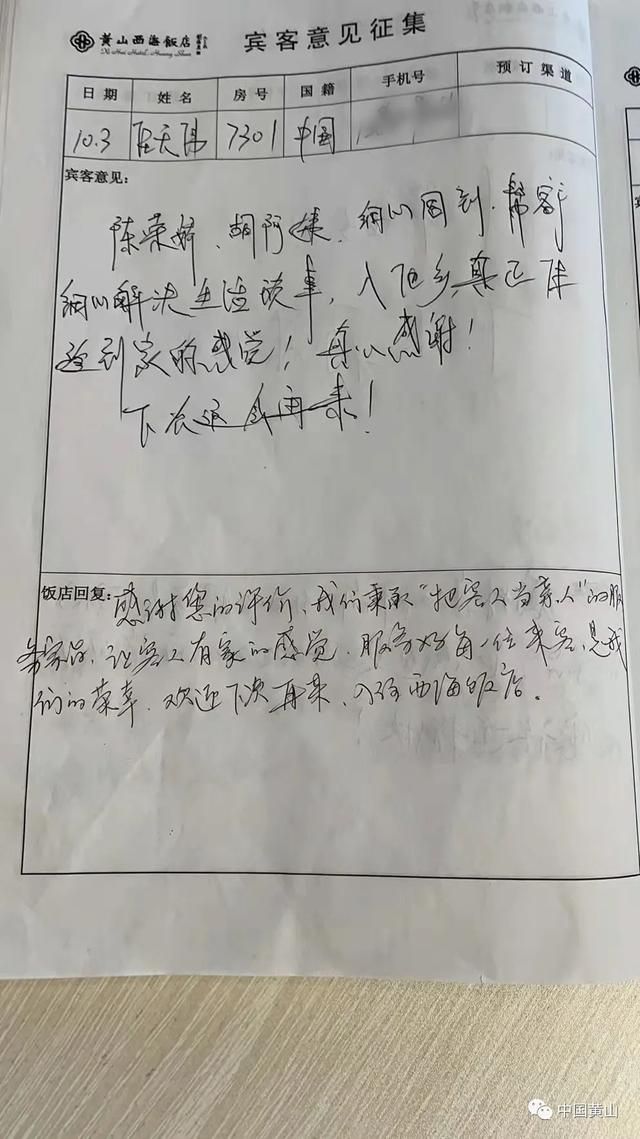 黄山西海飯店
Xi Hai Hotel·Huang Shan
宾客意见征集
日期 姓名 房号 国籍 手机号 预订渠道
10.3 天 7301 中国
宾客意见：
陈荣娇、胡阿姨、细心周到，帮客户
细心解决生活琐事，入住更真正体
验到家的感觉！真心感谢！
下次还会再来！
饭店回复：感谢您的评价，我们秉承“把客人当亲人”的服
务宗旨，让客人有家的感觉，服务好每一位来客，是我
们的荣幸，欢迎下次再来，入住西海饭店。
中国黄山